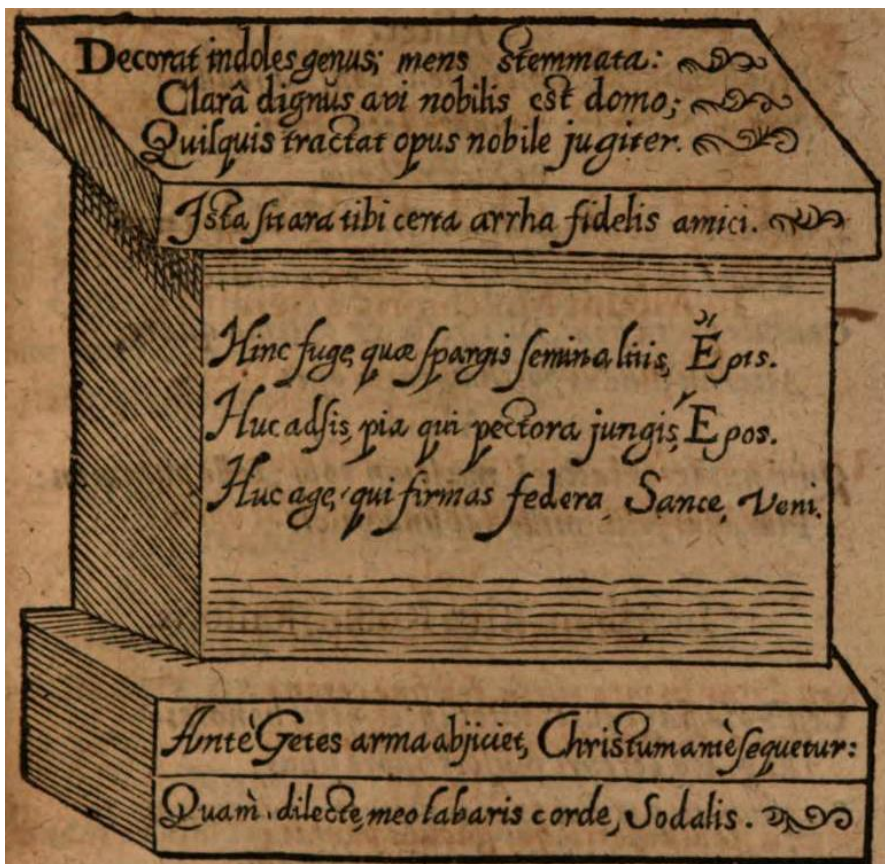 Decorat indoles genus; mens stemmata:
Clarâ dignŭs avi nobilis est domo;
Quiſquis tractat opus nobile jugiter.
Ista ſit ara tibi certa arrha fidelis amici.
Hinc fuge, quæ ſpargis ſemina litis, Ἔρις.
Huc adſis, pia qui pectora jungis, Ἔρος.
Huc age, qui firmas federa, Sance, Veni.
Antè Getes arma abjiciet, Christum antè ſequetur:
Quam̀, dilecte, meo labaris corde, Sodalis.